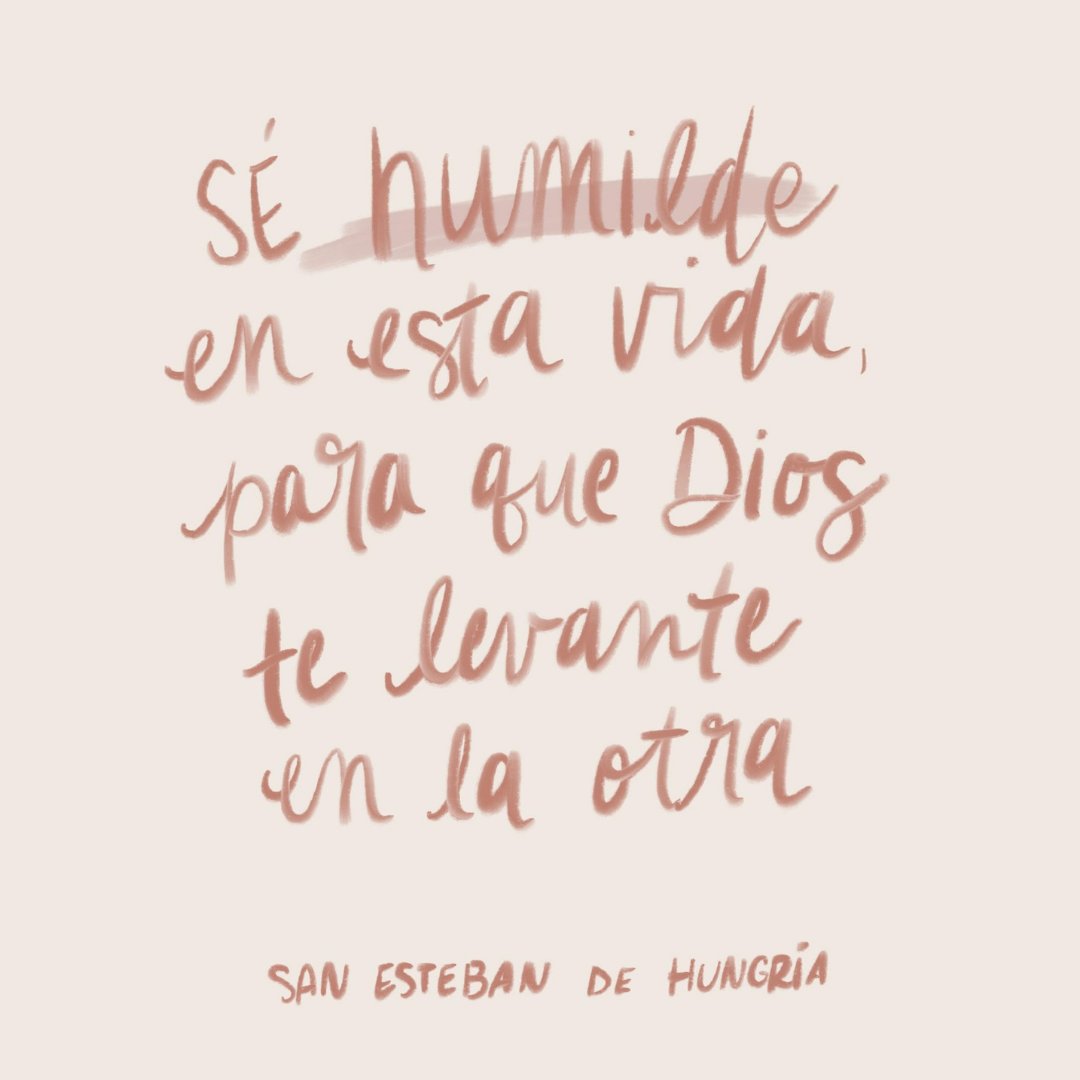 SÉ humilde
en esta vida,
para que Dios
te levante
en la otra
SAN ESTEBAN DE HUNGRÍA